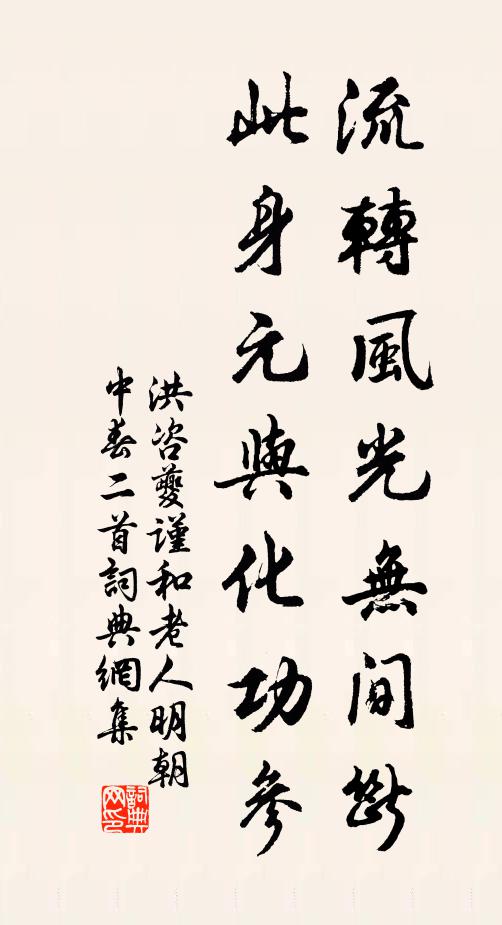 流轉風光無間斷
此身元與化功參
洪咨夔謹和老人明朝
中春二首詞典網集
詞典
网印